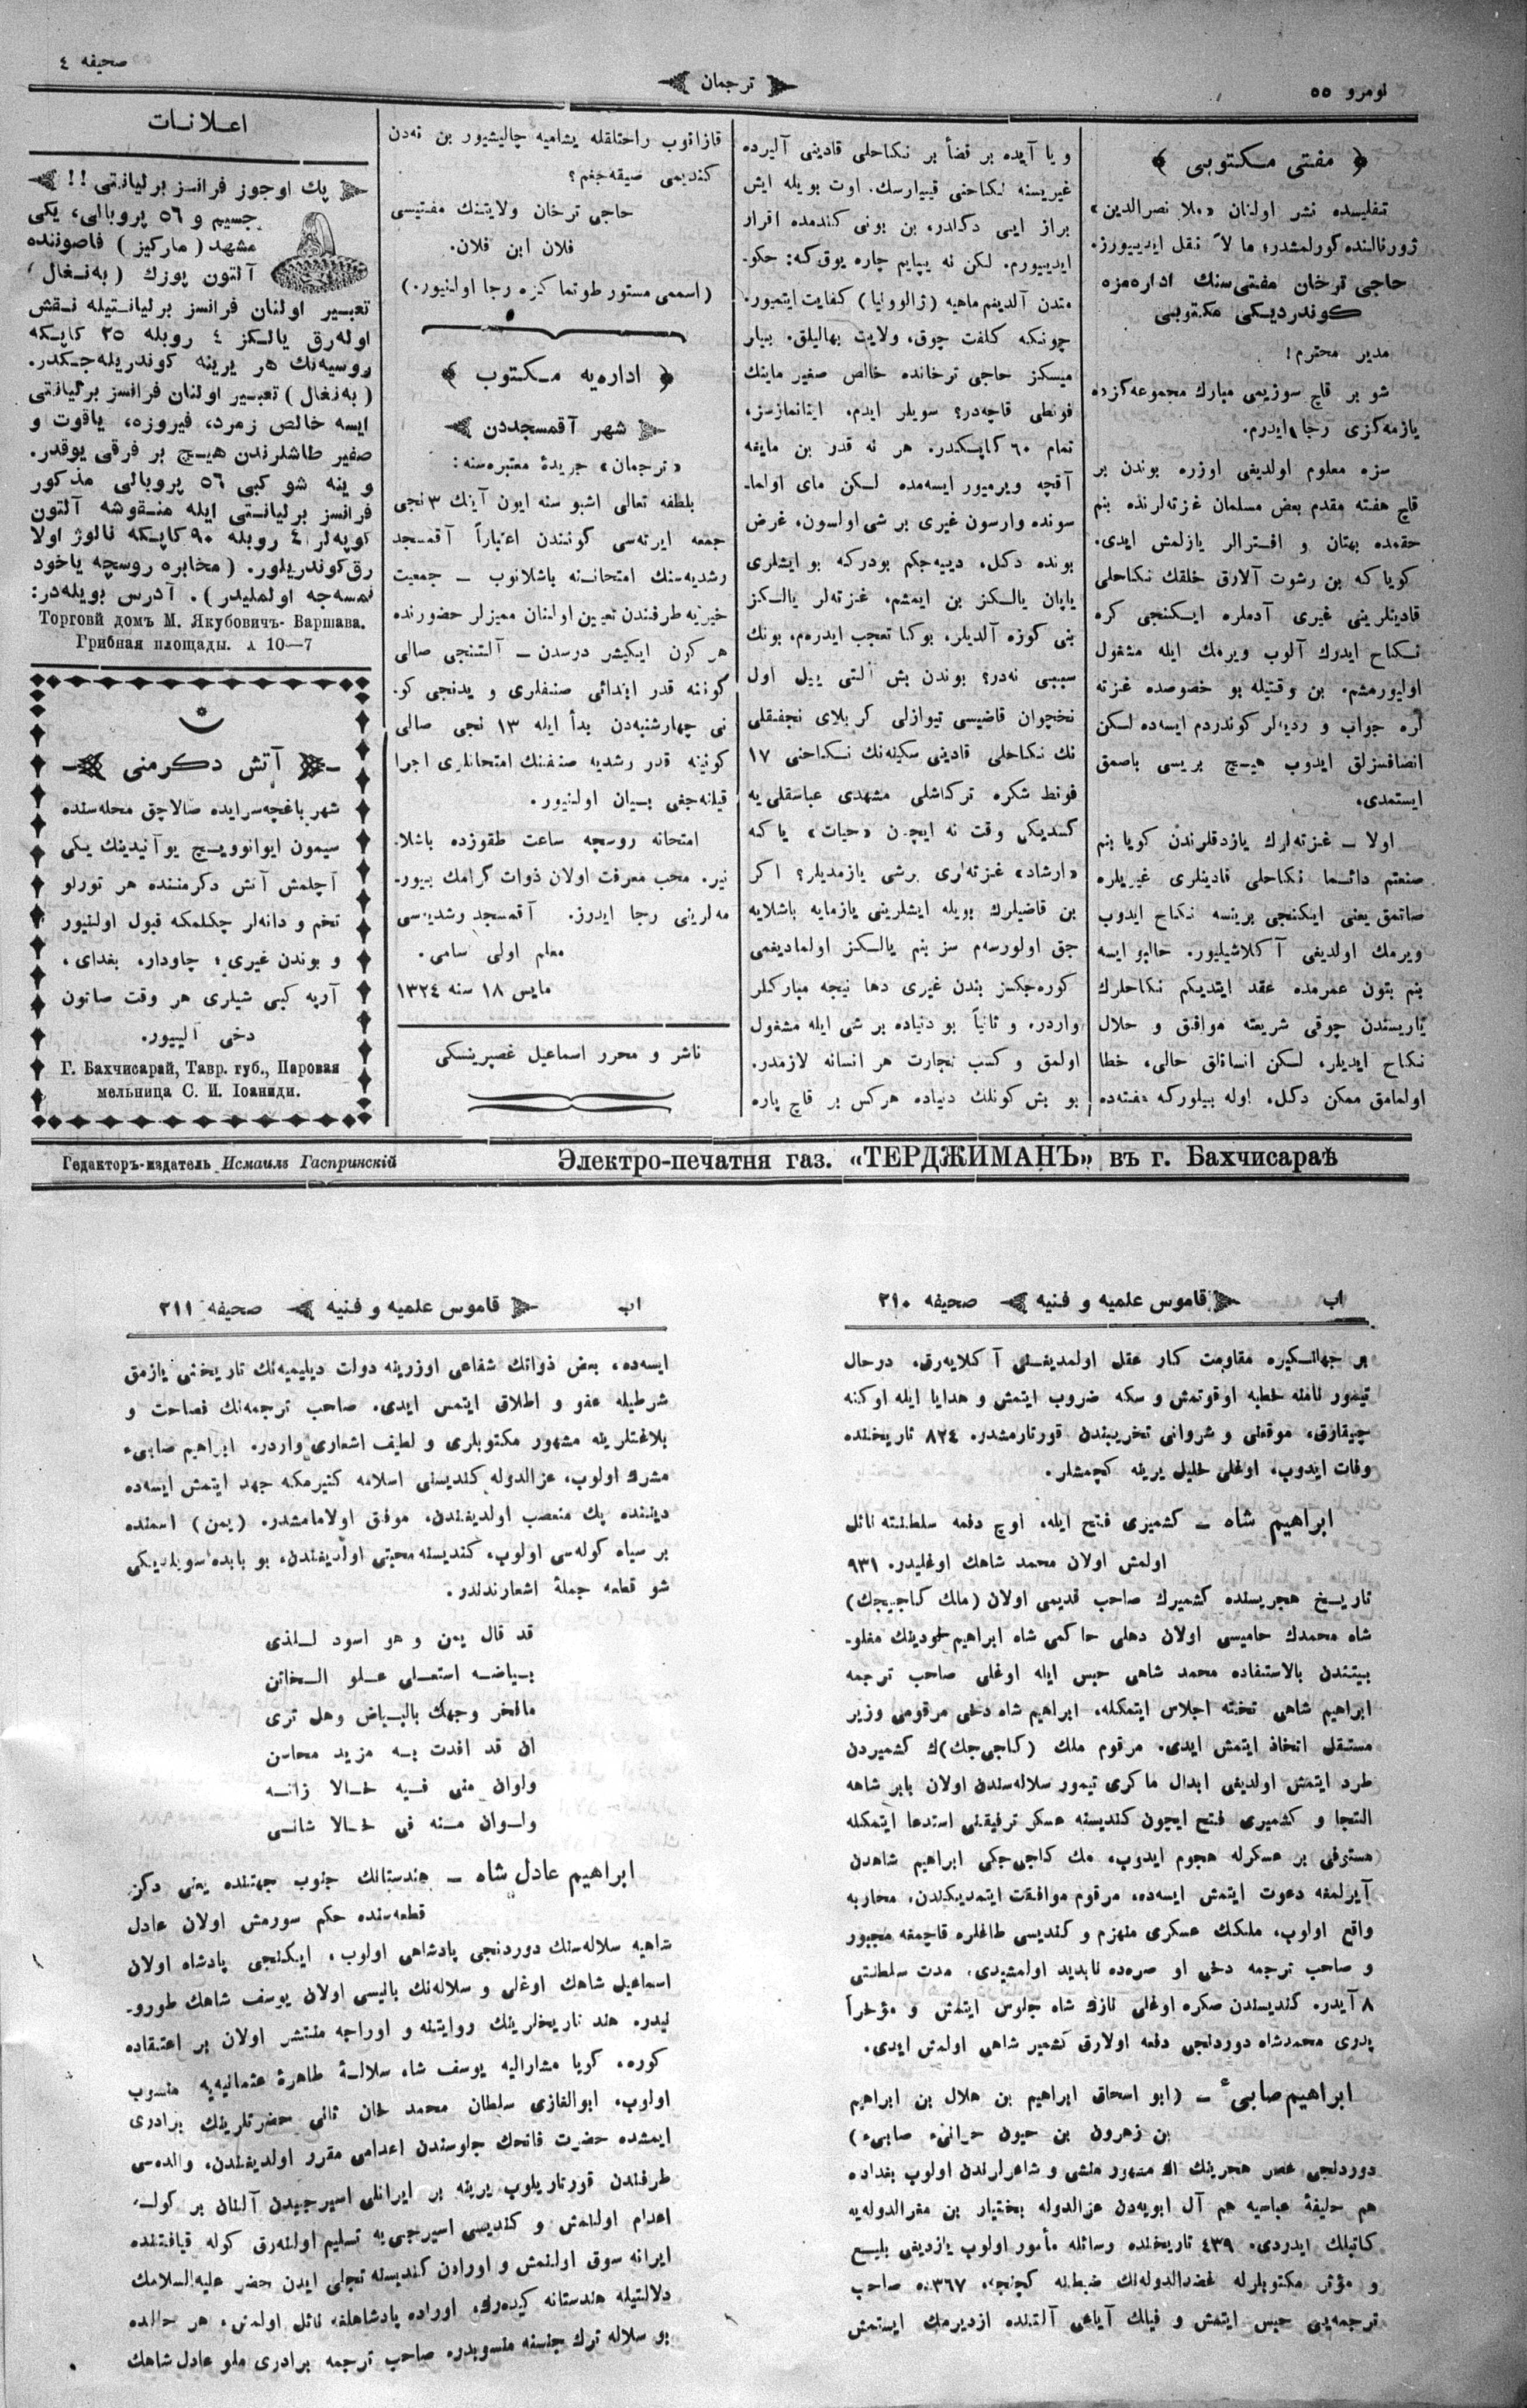 نومرو ٥٥
ترجمان
صحیفه ٤
مفتی مکتوبی
تفلیسده نشر اولنان «ملا نصرالدین»
ژورنالنده کورلمشدر؛ مالاً نقل ایدییورز.
حاجی ترخان مفتی‌سنك اداره‌مزه
کوندردیکی مکتوبی
مدیر محترم!
شو بر قاچ سوزیمی مبارك مجموعه‌کزده
یازمه‌کزی رجا ایدرم.
سزه معلوم اولدیغی اوزره بوندن بر
قاچ هفته مقدم بعض مسلمان غزته‌لرنده بنم
حقمده بهتان و افترالر یازلمش ایدی.
کویا که بن رشوت آلارق خلقك نکاحلی
قادینلرینی غیری آدملره ایکنجی کره
نکاح ایدرك آلوب ویرمك ایله مشغول
اولیورمشم. بن وقتیله بو خصوصده غزته
لره جواب و ردیه‌لر کوندردم ایسه‌ده لکن
انصافسزلق ایدوب هیچ بریسی باصمق
ایستمدی.
اولا ـ غزته‌لرك یازدقلرندن کویا بنم
صنعتم دائما نکاحلی قادینلری غیریلره
صاتمق یعنی ایکنجی برینه نکاح ایدوب
ویرمك اولدیغی آکلاشیلیور. حالبو ایسه
بنم بتون عمرمده عقد ایتدیکم نکاحلرك
یاریسندن چوقی شریعته موافق و حلال
نکاح ایدیلر. لسکن انسانلق حالی، خطا
اولمامق ممکن دکل. اوله بیلورکه هفته‌ده
و یا آیده بر قضأ بر نکاحلی قادینی آلیرده
غیریسنه نکاحنی قییارسك. اوت بویله ایش
براز ایی دکلدر، بن بونی کندمده اقرار
ایدییورم. لکن نه یپایم چاره یوق که: حکو-
متدن آلدیغم ماهیه (ژالوونیا) کفایت ایتمیور.
چونکه کلفت چوق، ولایت بهالیلق. بیلر
میسکز حاجی ترخانده خالص صغیر ماینك
فونطی قاچه‌در؟ سویلر ایدم، اینانمازسز،
تمام ٦٠ کاپیکدر. هر نه قدر بن مایغه
آقچه ویرمیور ایسه‌مده لسکن مای اولما-
سونده وارسون غیری بر شی اولسون. غرض
بونده دکل. دییه‌جکم بودرکه بو ایشلری
یاپان یالکز بن ایمشم. غزته‌لر یالکز
بنی کوزه آلدیلر. بوکا تعجب ایدرم. بونك
سببی نه‌در؟ بوندن بش التی ییل اول
نخچوان قاضیسی تیوازلی کربلای نجفقلی
نك نکاحلی قادینی سکینه‌نك نکاحنی ١٧
فونط شکره ترکداشلی مشهدی عباسقلی‌یه
کسدیکی وقت نه ایچون «حیات» یا که
«ارشاد» غزته‌لری برشی یازمدیلر؟ اکر
بن قاضیلرك بویله ایشلرینی یازمایه باشلایه
جق اولورسه‌م سز بنم یالکز اولمادیغمی
کوره‌جکسز بندن غیری دها نیجه مبارکلر
واردر. و ثانیاً بو دنیاده بر شی ایله مشغول
اولمق و کسب تجارت هر انسانه لازمدر.
بو بش کونلك دنیاده هرکس بر قاچ پاره
قازانوب راحتلقله یشامیه چالیشیور بن نه‌دن
کندیمی صیقه‌جغم؟
حاجی ترخان ولایتنك مفتیسی
فلان ابن فلان.
(اسممی مستور طوتماکزه رجا اولنیور.)
اداره‌یه مکتوب
شهر آقمسجددن
«ترجمان» جریدۀ معتبره‌سنه:
بلطفه تعالی اشبو سنه ایون آینك ٣ نجی
جمعه ایرته‌سی کونندن اعتباراً آقمسجد
رشدیه‌سنك امتحاننه باشلانوب ـ جمعیت
خیریه طرفندن تعیین اولنان ممیزلر حضورنده
هر کون ایکیشر درسدن ـ آلتنجی صالی
کوننه قدر ابتدائی صنفلری و یدنجی کو-
نی چهارشنبه‌دن بدأ ایله ١٣ نجی صالی
کونینه قدر رشدیه صنفنك امتحانلری اجرا
قیلنه‌جغی بیان اولنیور.
امتحانه روسچه ساعت طقوزده باشلا-
نیر. محب معرفت اولان ذوات کرامك بیور-
مه‌لرینی رجا ایدرز. آقمسجد رشدیه‌سی
معلم اولی سامی.
مایس ١٨ سنه ١٣٢٤
ناشر و محرر اسماعیل غصپرینسکی
اعلانات
پك اوجوز فرانسز برلیانتی !!
جسیم و ٥٦ پروبالی، یکی
مشهد (مارکیز) فاصوننده
آلتون یوزك (به‌نغال)
تعبیر اولنان فرانسز برلیانتیله نقش
اوله‌رق یالکز ٤ روبله ٢٥ کاپیکه
روسیه‌نك هر یرینه کوندریله‌جکدر.
(به‌نغال) تعبیر اولنان فرانسز برلیانتی
ایسه خالص زمرد، فیروزه، یاقوت و
صفیر طاشلرندن هیچ بر فرقی یوقدر.
و ینه شو کبی ٥٦ پروبالی مذکور
فرانسز برلیانتی ایله منقوشه آلتون
کوپه‌لر ٤ روبله ٩٠ کاپیکه نالوژ اولا
رق کوندریلور. (مخابره روسچه یاخود
نمسه‌جه اولملیدر). آدرس بویله‌در:
Торговй домъ М. Якубовичъ- Варшава.
Грибная площады. д 10—7
آتش دکرمنی
شهر باغچه‌سرایده صالاچق محله‌سنده
سیمون ایوانوویچ یوآنیدینك یکی
آچلمش آتش دکرمننده هر تورلو
تخم و دانه‌لر چکلمکه قبول اولنیور
و بوندن غیری؛ چاودار، بغدای،
آرپه کبی شیلری هر وقت صاتون
دخی آلییور.
Г. Бахчисарай, Тавр. губ., Паровая
мельница С. И. Іоаниди.
Редакторъ-издатель Исмаилъ Гаспринскій
Электро-печатня газ. «ТЕРДЖИМАНЪ» въ г. Бахчисараѣ
اب
قاموس علمیه و فنیه
صحیفه ٢١٠
بر جهانکیره مقاومت کار عقل اولمدیغنی آکلایه‌رق، درحال
تیمور نامنه خطبه اوقوتمش و سکه ضروب ایتمش و هدایا ایله اوکنه
چیقارق، موقعنی و شروانی تخریبندن قورتارمشدر. ٨٢٤ تاریخنده
وفات ایدوب، اوغلی خلیل یرینه کچمشلر.
ابراهیم شاه ـ کشمیری فتح ایله، اوچ دفعه سلطنته نائل
اولمش اولان محمد شاهك اوغلیدر. ٩٣١
تاریخ هجریسنده کشمیرك صاحب قدیمی اولان (مالك کاجیجك)
شاه محمدك حامیسی اولان دهلی حاکمی شاه ابراهیم لودینك مغلو-
بیتندن بالاستفاده محمد شاهی حبس ایله اوغلی صاحب ترجمه
ابراهیم شاهی تخته اجلاس ایتمکله، ابراهیم شاه دخی مرقومی وزیر
مستقل اتخاذ ایتمش ایدی. مرقوم ملك (کاجی‌جك)ك کشمیردن
طرد ایتمش اولدیغی ابدال ماکری تیمور سلاله‌سندن اولان بابر شاهه
التجا و کشمیری فتح ایچون کندیسنه عسکر ترفیقنی استدعا ایتمکله
مستوفی بر عسکرله هجوم ایدوب، ملك کاجی‌جکی ابراهیم شاهدن
آیرلمغه دعوت ایتمش ایسه‌ده، مرقوم موافقت ایتمدیکندن، محاربه
واقع اولوب، ملكك عسکری منهزم و کندیسی طاغلره قاچمغه مجبور
و صاحب ترجمه دخی او صره‌ده نابدید اولمشیدی. مدت سلطنتی
٨ آیدر. کندیسندن صکره اوغلی نازك شاه جلوس ایتمش و مؤخراً
پدری محمدشاه دوردنجی دفعه اولارق کشمیر شاهی اولمش ایدی.
ابراهیم صابیء ـ (ابو اسحاق ابراهیم بن هلال بن ابراهیم
بن زهرون بن حیون حرانیء صابیء)
دوردنجی عصر هجرینك اك مشهور منشی و شاعرلرندن اولوب بغداده
هم خلیفۀ عباسیه هم آل ابویه‌دن عزالدوله بختیار بن مغرالدوله‌یه
کاتبلك ایدردی. ٤٣٩ تاریخنده وسائله مأمور اولوب یازدیغی بلیغ
و مؤثر مکتوبلرله عضدالدوله‌نك ضبطنه کچنجه، ٣٦٧ ده صاحب
ترجمه‌یی حبس ایتمش و فیلك آیاغی آلتنده ازدیرمك ایستمش
اب
قاموس علمیه و فنیه
صحیفه ٢١١
ایسه‌ده، بعض ذواتك شفاعی اوزرینه دولت دیلیمیه‌نك تاریخنی یازمق
شرطیله عفو و اطلاق ایتمس ایدی. صاحب ترجمه‌نك فصاحت و
بلاغتلرینه مشهور مکتوبلری و لطیف اشعاری واردر. ابراهیم صابیء
مشرك اولوب، عزالدوله کندیسنی اسلامه کتیرمکه جهد ایتمش ایسه‌ده
دیننده پك متعصب اولدیغندن، موفق اولامامشدر. (یمن) اسمنده
بر سیاه کوله‌سی اولوب، کندیسنه محبتی اولدیغندن، بو بابده سویلدیکی
شو قطعه جملۀ اشعارندندو.
قد قال یمن و هو اسود للذی
ببیاضه استعلی علو الخاتن
مافخر وجهك بالبیاض وهل تری
ان قد افدت به مزید محاسن
ولوان منی فیه خالا زانه
ولوان منه فی خالا شانی
ابراهیم عادل شاه ـ هندستانك جنوب جهتنده یعنی دکن
قطعه‌سنده حکم سورمش اولان عادل
شاهیه سلاله‌سنك دوردنجی پادشاهی اولوب، ایکنجی پادشاه اولان
اسماعیل شاهك اوغلی و سلاله‌نك بانیسی اولان یوسف شاهك طورو-
نیدر. هند تاریخلرینك روایتنه و اوراجه منتشر اولان بر اعتقاده
کوره، کویا مشارالیه یوسف شاه سلالۀ طاهرۀ عثمانیه‌یه منسوب
اولوب، ابوالغازی سلطان محمد خان ثانی حضرتلرینك برادری
ایمشده حضرت فاتحك جلوسندن اعدامی مقرر اولدیغندن، والده‌سی
طرفندن قورتاریلوب یرینه بر ایرانلی اسیرجیدن آلنان بر کوله
اعدام اولنمش و کندیسی اسیرجی‌یه تسلیم اولنه‌رق کوله قیافتنده
ایرانه سوق اولنمش و اورادن کندیسنه تجلی ایدن خضر علیه السلامك
دلالتیله هندستانه کیده‌رك، اوراده پادشاهلغه نائل اولمش، هر حالده
بو سلاله ترك جنسنه منسوبدر، صاحب ترجمه برادری ملو عادل شاهك